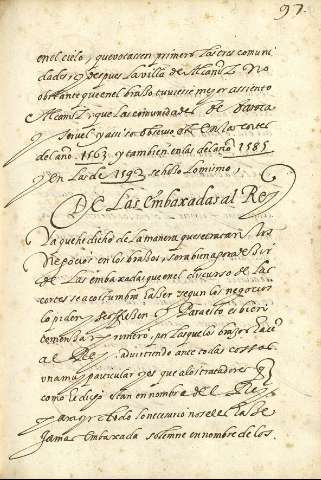 97.
en el cielo, que votassen primero las tres comuni
dades y despues la villa de Alcañiz no
obstante que en el brasso tuviesse mejor assiento
Alcañiz, que las comunidades de
y Teruel y assi se observo en las cortes
del año 1563 y tambien en las del año 1585
y en las de 1592 se hiso lo mismo,
De Las Embaxadas al Rey
Ya que he dicho de la manera que se tratan los
Negocios en los brassos, sera bien pera desir
de Las embaxadas que en el discurso de las
cortes se acostumbra haser segun los negocios
lo piden y se offresen Y Para esto es bien
comensar primero, por las que los brassos hacen
al Rey, advirtiendo ante todas cossas
una muy particular y es que a los tratadores
como he dicho estan en nombre del Rey
y para todo lo necessario no se les ha de
jamas Embaxada solemne en nombre de los